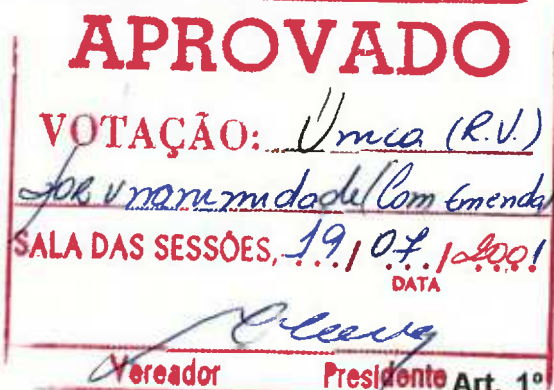 APROVADO
VOTAÇÃO: Única (R.V.)
POR Unanimidade/Com Emenda
SALA DAS SESSÕES, 19 / 07 / 2001
DATA
Vereador Presidente Art. 1º